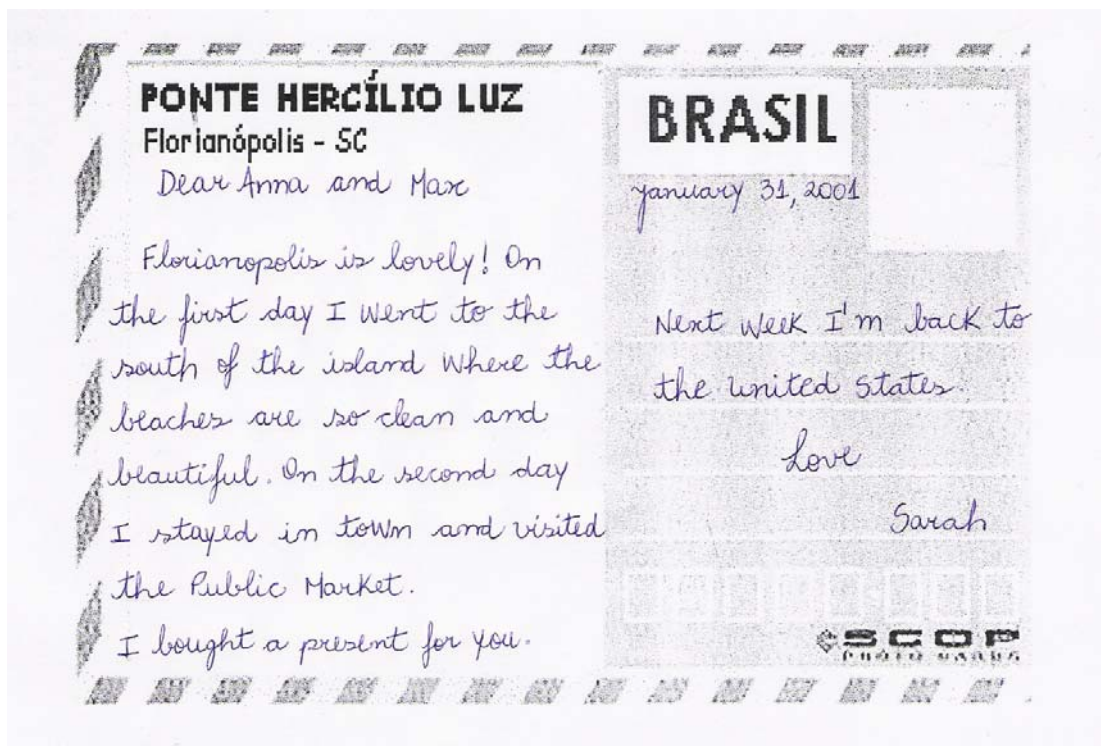 PONTE HERCÍLIO LUZ
Florianópolis - SC
Dear Anna and Max
Florianopolis is lovely! On
the first day I went to the
south of the island where the
beaches are so clean and
beautiful. On the second day
I stayed in town and visited
the Public Market.
I bought a present for you.
BRASIL
January 31, 2001
Next week I'm back to
the United States.
Love
Sarah
SCOP